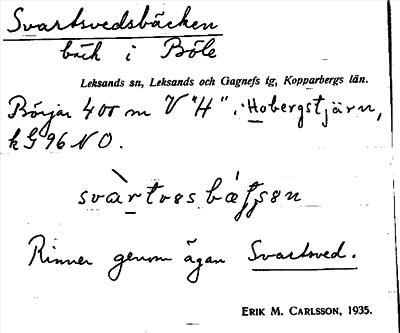 Svartsvedsbäcken
bäck i Böle
Leksands sn, Leksands och Gagnefs tg, Kopparbergs län.
Börjar 400 m V "H" i Hobergstjärn,
k G 96 NO.
Rinner genom ägan Svartsved.
ERIK M. CARLSSON, 1935.